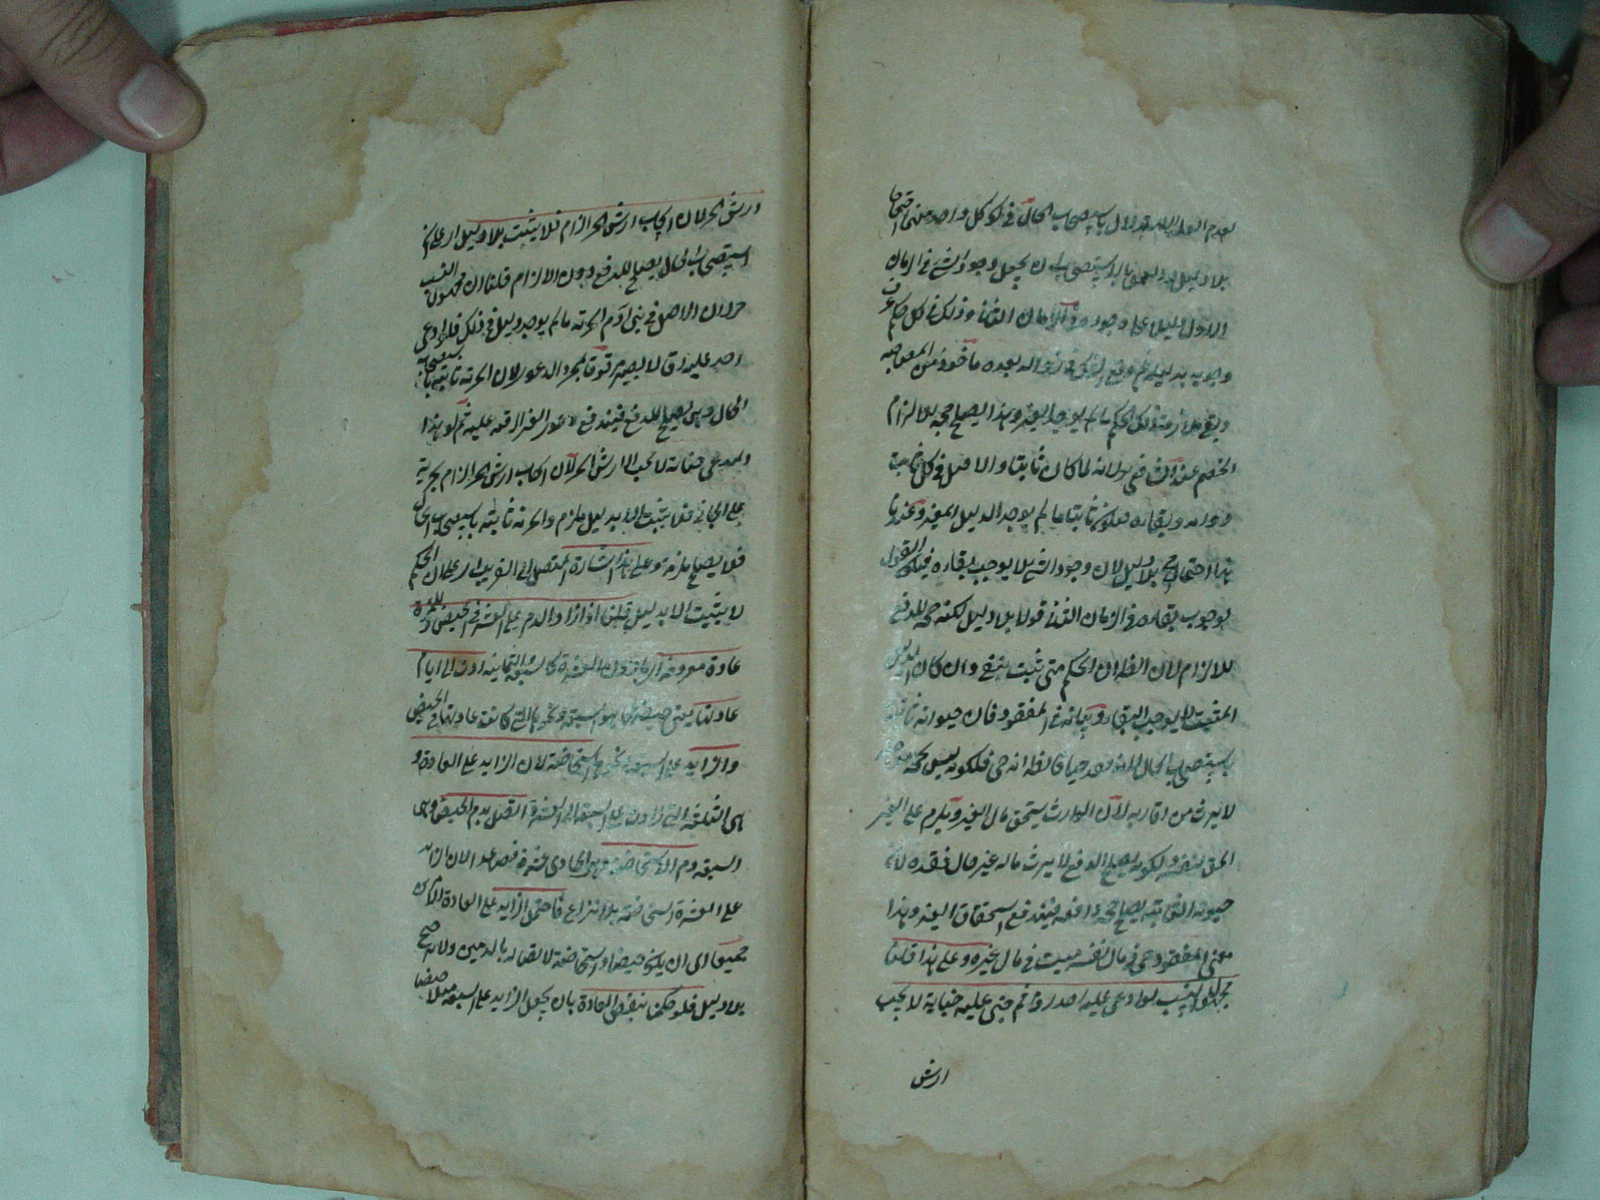 بعدم الدليل الاستدلال باستصحاب الحال في كل واحد منهما احتجاجا
بلا دليل والتمسك بالاستصحاب ان يجعل وجود الشئ في الزمان
الاول دليلا على وجوده في الزمان الثاني وذلك في كل حكم عرف
وجوبه بدليله ثم وقع الشك في زواله بعده ماخوذ من المصاحبة
وبقي ملازمة ذلك الحكم ما لم يوجد المغير وهذا يصلح حجة بها الزام
الخصم عند الشافعي ولانه لما كان ثابتا والاصل في كل ثابت
دوامه وبقاءه فيكون ثابتا ما لم يوجد الدليل المغير وعندنا
هذا احتجاج بلا دليل لان وجود الشئ لا يوجب بقاءه فيكون القول
بوجوب بقاءه في الزمان الثاني قولا بلا دليل لكنه حجة للدفع
لا للالزام لان الظاهر ان الحكم متى ثبت يبقى وان كان الدليل
المثبت لا يوجب البقاء وبيانه في المفقود فان حيوته ثابتة
باستصحاب الحال حياة الظاهر انه حي فلكونه ليس بحجة
لا يرث من اقاربه لان الوارث يستحق مال الغير ويلزم على الغير
الحق لنفسه ولكونه يصلح للدفع لا يرث ماله غيره حال فقده لان
حيوته الثابتة يصلح حجة دافعة فيندفع استحقاق الغير وهذا
معنى المفقود حي في مال نفسه ميت في مال غيره وعلى هذا قلنا
مجهول النسب لو ادعى عليه احد رقا ثم جنى عليه جناية لا يجب
ارش
ارش الحر لان ايجاب ارش الحر الزام فلا يثبت بلا دليل
استصحاب الحال يصلح للدفع دون الالزام قلنا ان مجهول النسب
حر لان الاصل في بني آدم الحرية ما لم يوجد دليل في ذلك فلو ادعى
احد عليه رقا لا يصير رقيقا بمجرد الدعوى لان الحرية ثابتة باستصحاب
الحال وهي يصلح للدفع فيندفع دعوى الغير الرق عليه ثم لو هذا
المدعي جناية لا يجب ارش الحر لان ايجاب ارش الحر الزام بحرية
على الجاني فلا يثبت الا بدليل ملزم والحرية ثابتة باستصحاب الحال
فلا يصلح ملزمة وعلى هذا اشارة الى ان الحكم
لا يثبت الا بدليل قلنا اذا زاد الدم على العشرة في الحيض وللمراة
عادة معروفة دون العشرة كالسبعة والثمانية ردت الى ايام
عادتها يعني حيضها هو السبعة ونحوها التي كانت عادتها في الحيض
والزايد على السبعة ونحوها استحاضة لان الزايد على العادة و
هي الثلثة التي زادت على السبعة الى العشرة اتصل بدم الحيض وهي
السبعة ودم الاستحاضة وهو الحادي عشرة فصاعدا لان الزايد
على العشرة استحاضة بلا نزاع فاحتمل الزايد على العادة الامرين
جميعا اي ان يكون حيضا واستحاضة لاتصاله بالدمين ولا ترجيح
بلا دليل فلو حكمنا بنقض العادة بان يجعل الزايد على السبعة مثلا حيضا